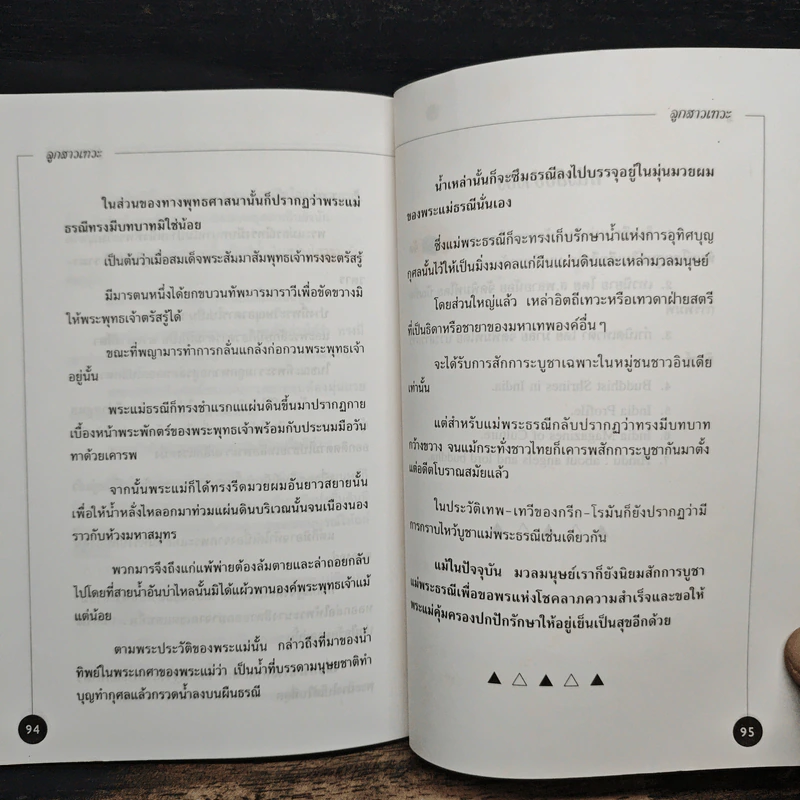 ลูกสาวเทวะ
ในส่วนของทางพุทธศาสนานั้นก็ปรากฏว่าพระแม่
ธรณีทรงมีบทบาทมิใช่น้อย
เป็นต้นว่าเมื่อสมเด็จพระสัมมาสัมพุทธเจ้าทรงจะตรัสรู้
มีมารตนหนึ่งได้ยกขบวนทัพมารมาราวีเพื่อขัดขวางมิ
ให้พระพุทธเจ้าตรัสรู้ได้
ขณะที่พญามารทำการกลั่นแกล้งก่อกวนพระพุทธเจ้า
อยู่นั้น
พระแม่ธรณีก็ทรงชำแรกแผ่นดินขึ้นมาปรากฏกาย
เบื้องหน้าพระพักตร์ของพระพุทธเจ้าพร้อมกับประนมมือวัน
ทาด้วยเคารพ
จากนั้นพระแม่ก็ได้ทรงรีดมวยผมอันยาวสยายนั้น
เพื่อให้น้ำหลั่งไหลออกมาท่วมแผ่นดินบริเวณนั้นจนเนืองนอง
ราวกับห้วงมหาสมุทร
พวกมารจึงถึงแก่แพ้พ่ายต้องล้มตายและล่าถอยกลับ
ไปโดยที่สายน้ำอันบ่าไหลนั้นมิได้แผ้วพานองค์พระพุทธเจ้าแม้
แต่น้อย
ตามพระประวัติของพระแม่นั้น กล่าวถึงที่มาของน้ำ
ทิพย์ในพระเกศาของพระแม่ว่า เป็นน้ำที่บรรดามนุษยชาติทำ
บุญทำกุศลแล้วกรวดน้ำลงบนผืนธรณี
94
ลูกสาวเทวะ
น้ำเหล่านั้นก็จะซึมธรณีลงไปบรรจุอยู่ในมุ่นมวยผม
ของพระแม่ธรณีนั่นเอง
ซึ่งแม่พระธรณีก็จะทรงเก็บรักษาน้ำแห่งการอุทิศบุญ
กุศลนั้นไว้ให้เป็นมิ่งมงคลแก่ผืนแผ่นดินและเหล่ามวลมนุษย์
โดยส่วนใหญ่แล้ว เหล่าอิตถีเทวะหรือเทวดาฝ่ายสตรี
ที่เป็นธิดาหรือชายาของมหาเทพองค์อื่น ๆ
จะได้รับการสักการะบูชาเฉพาะในหมู่ชนชาวอินเดีย
เท่านั้น
แต่สำหรับแม่พระธรณีกลับปรากฏว่าทรงมีบทบาท
กว้างขวาง จนแม้กระทั่งชาวไทยก็เคารพสักการะบูชากันมาตั้ง
แต่อดีตโบราณสมัยแล้ว
ในประวัติเทพ-เทวีของกรีก-โรมันก็ยังปรากฏว่ามี
การกราบไหว้บูชาแม่พระธรณีเช่นเดียวกัน
แม้ในปัจจุบัน มวลมนุษย์เราก็ยังนิยมสักการะบูชา
แม่พระธรณีเพื่อขอพรแห่งโชคลาภความสำเร็จและขอให้
พระแม่คุ้มครองปกปักรักษาให้อยู่เย็นเป็นสุขอีกด้วย
95